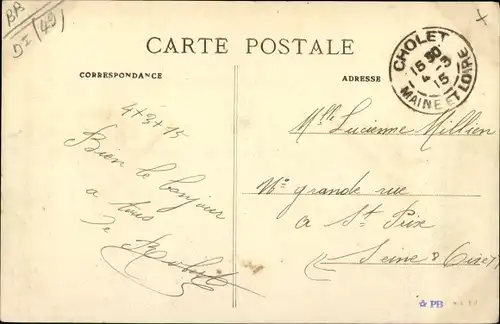 BB
DI (49)
CARTE POSTALE
CORRESPONDANCE
ADRESSE
CHOLET
15 30
4 - 3
15
MAINE ET LOIRE
4+3+15
Bien le bonjour
a tous
De
Mlle Lucienne Millien
grande rue
a St Prix
Seine & Oise
PB